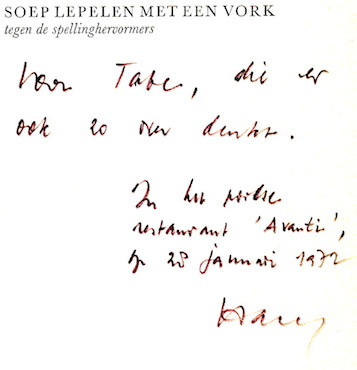 SOEP LEPELEN MET EEN VORK
tegen de spellinghervormers
Voor Tabe, die er
ook zo over denkt.
In het
restaurant 'Avanti',
op 28 januari 1972
Harry